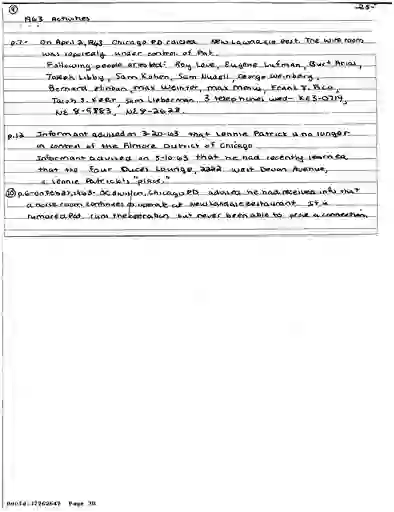 ⑨ -25-
1963 Activities
p.7- On April 2, 1963 Chicago P.D. raided New Lawndale Rest. The wire room
was reportedly under control of Pat.
Following people arrested: Roy Love, Eugene Lufman, Burt Arias,
Joseph Libby, Sam Kohen, Sam Nudell, George Weinberg,
Bernard Elinban, Max Weinter, Max Morris, Frank J. Pico,
Jacob S. Keer, Sam Lieberman. 3 telephones used- KE3-0714,
NE 8-5883, NE 8-2628.
p.12 Informant advised on 3-20-63 that Lennie Patrick is no longer
in control of the Filmore District of Chicago
Informant advised on 5-10-63 that he had recently learned
that the Four Duces Lounge, 2222 West Devon Avenue,
is Lennie Patrick's "place."
⑩ p.6- on Feb 27, 1963- division, Chicago PD advised he had received info that
a horse room continues to operate at New Lawndale Restaurant. It is
rumored Pat. runs the operation but never been able to prove a connection.
DocId:32262647 Page 30